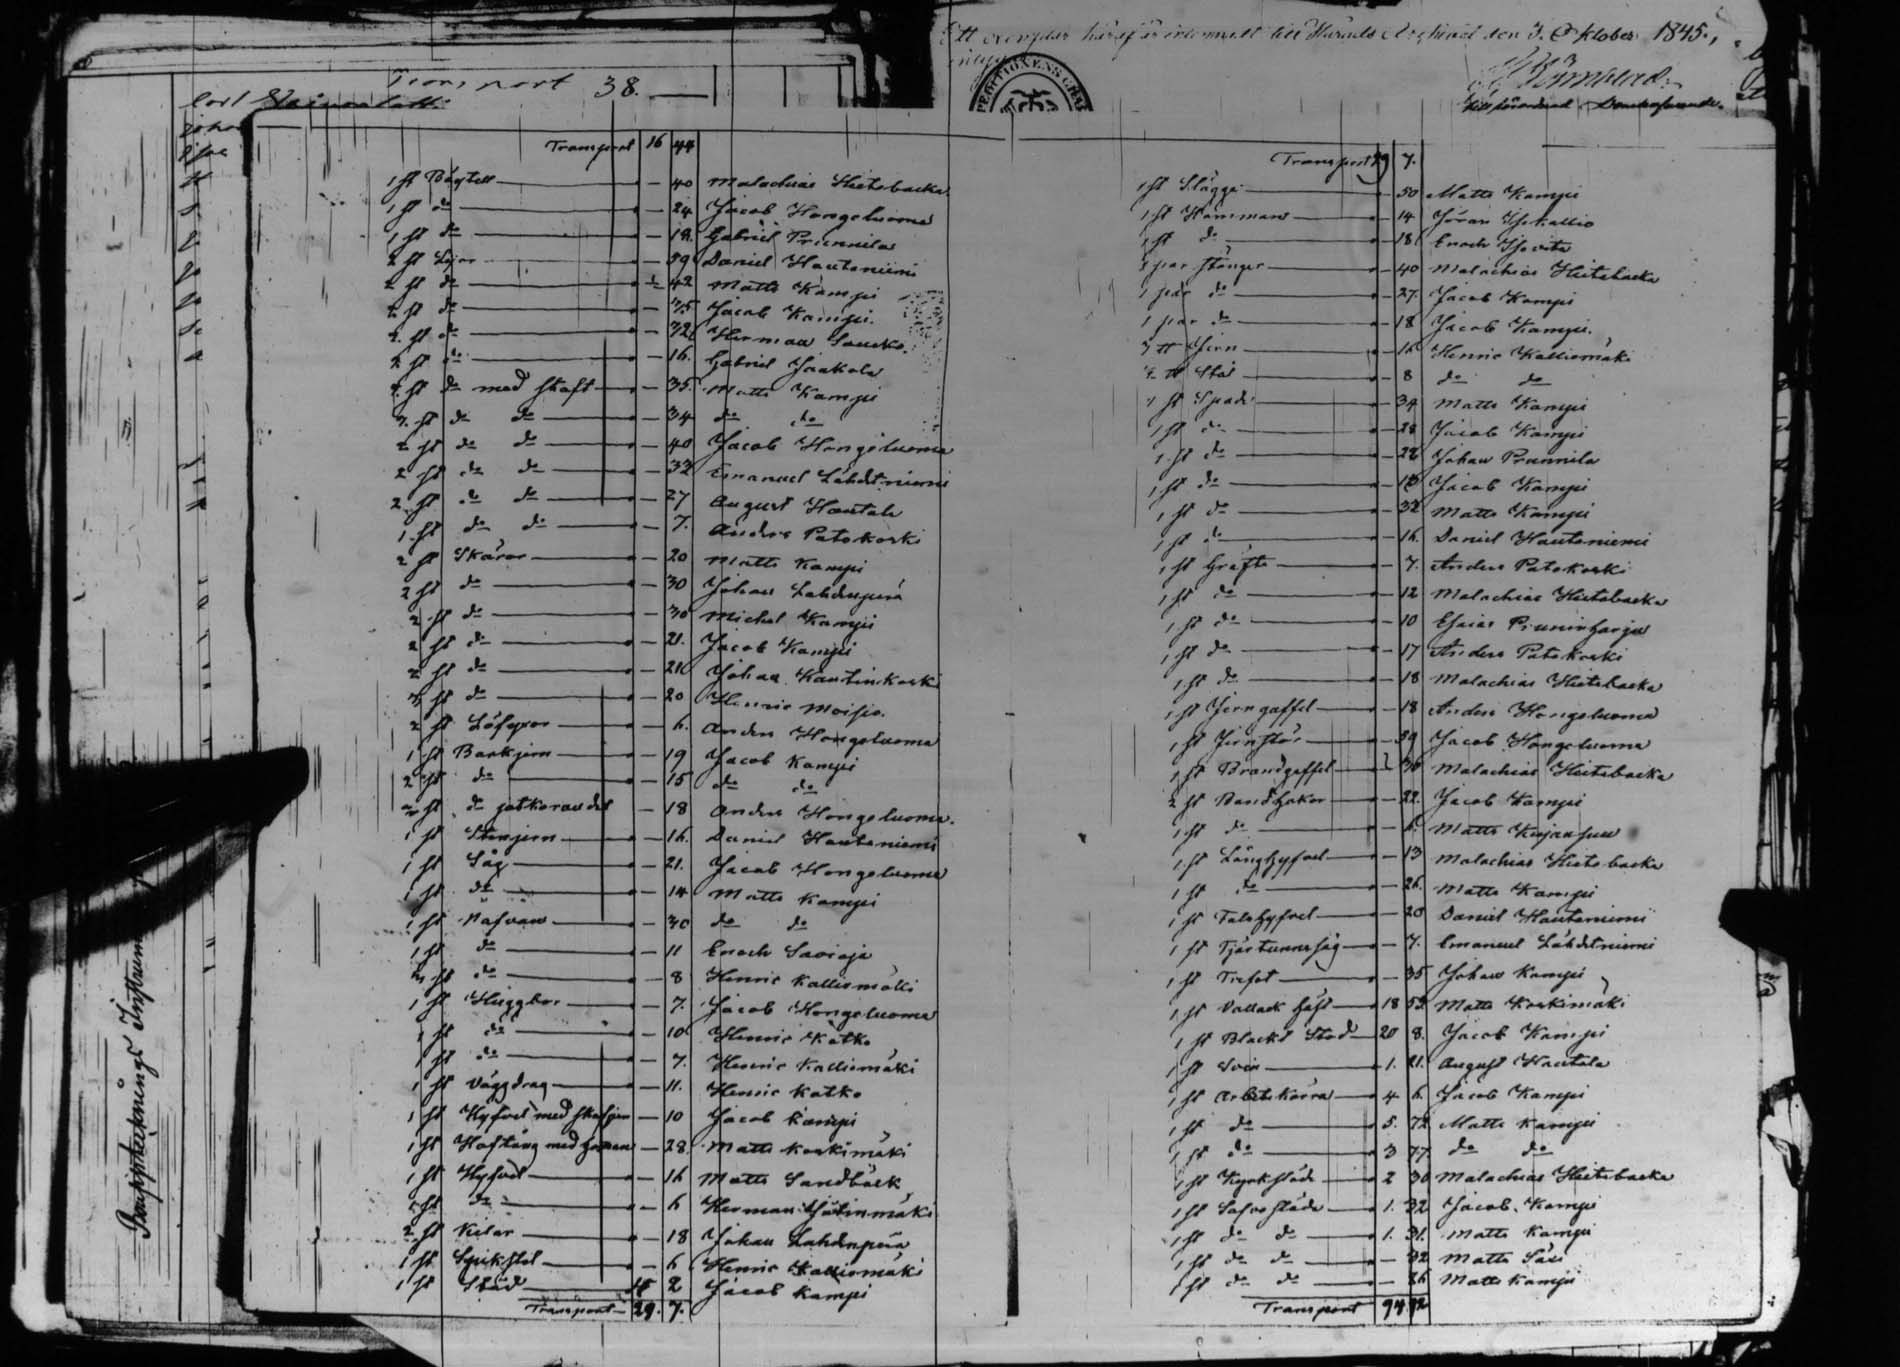 Ett exemplar häraf är inlemnadt till Härads Archivet den 3. Oktober 1845.,
intygar
Transport 38.
Carl
Johan
Transport 16 44
1 st Bögtell — 40 Malachias Hietabacka
1 st do — 24 Jacob Hongeluoma
1 st do — 18. Gabriel Prunnila
2 st Lijor — 59 Daniel Hautaniemi
2 st do — 42 Matts Kampi
2 st do — 35 Jacob Kampi.
2 st do — 32 Herman
2 st do — 16. Gabriel Jaakola
2 st do med skaft — 35. Matts Kampi
2 st do do — 34 do do
2 st do do — 40 Jacob Hongeluoma
2 st do do — 33 Emanuel Lähdetniemi
2 st do do — 27 August Hautala
1 st do do — 7. Anders Patokoski
2 st Skäror — 20 Matts Kampi
2 st do — 30 Johan Lahdenperä
2 st do — 30 Michel Kampi
2 st do — 21. Jacob Kampi
2 st do — 21. Johan Kautinkoski
3 st do — 20 Henric Moisio.
2 st Löfyxor — 6. Anders Hongeluoma
1 st Barkjern — 19 Jacob Kampi
2 st do — 15 do do
2 st do — 18 Anders Hongeluoma.
1 st Stenjern — 16. Daniel Hautaniemi
1 st Såg — 21. Jacob Hongeluoma
1 st do — 14 Matts Kampi
1 st Nafvare — 30 do do
1 st do — 11 Enoch Savioja
3 st do — 8 Henric Kalliomäki
1 st Huggbor — 7. Jacob Hongeluoma
1 st do — 10 Henric Katko
1 st do — 7. Henric Kalliomäki
1 st Väggdrag — 11. Henric Katko
1 st Hyfvel med skafjern — 10 Jacob Kampi
1 st Hoftång med hamare — 28. Matts Koskimäki
1 st Hyfvel — 16 Matts Sandbäck
1 st do — 6 Herman
2 st Kilar — 18 Johan Lahdenperä
1 st Spikstol — 6 Henric Kalliomäki
1 st Städ — 2 Jacob Kampi
Transport 29. 7.
Transport 29 7.
1 st Slägga — 50 Matts Kampi
1 st Hammare — 14 Jöran Ylikallio
1 st do — 18 Enoch
1 par Stänger — 40 Malachias Hietabacka
1 par do — 27. Jacob Kampi
1 par do — 18 Jacob Kampi.
3 ℔ Jern — 16 Henric Kalliomäki
2 ℔ Stål — 8 do do
1 st Spade — 34 Matts Kampi
1 st do — 28 Jacob Kampi
1 st do — 28 Johan Prunnila
1 st do — Jacob Kampi
1 st do — 32 Matts Kampi
1 st do — 16. Daniel Hautaniemi
1 st Gräfta — 7. Anders Patokoski
1 st do — 12 Malachias Hietabacka
1 st do — 10 Esaias Pruninharju
1 st do — 17 Anders Patokoski
1 st do — 18 Malachias Hietabacka
1 st Jerngaffel — 18 Anders Hongeluoma
1 st Jernstör — 59 Jacob Hongeluoma
1 st Brandgaffel — 30 Malachias Hietabacka
2 st Brandhakar — 22. Jacob Kampi
1 st do — 6. Matts Kujansuu
1 st Långhyfvel — 13 Malachias Hietabacka
1 st do — 26. Matts Kampi
1 st Falshyfvel — 20 Daniel Hautaniemi
1 st Tjärtunnsåg — 7. Emanuel Lähdetniemi
1 st Trefot — 35 Johan Kampi
1 st Vallack häst — 18 52 Matts Koskimäki
1 st Blackt Stod — 20 8. Jacob Kampi
1 st Svin — 1. 21. August Hautala
1 st Arbetskärra — 4 6 Jacob Kampi
1 st do — 5. 72 Matts Kampi
1 st do — 3 77 do do
1 st Kyrksläde — 2 30 Malachias Hietabacka
1 st släde — 1. 32 Jacob Kampi
1 st do do — 1. 31. Matts Kampi
1 st do do — 32 Matts Säsi
1 st do do — 86 Matts Kampi
Transport 94 92